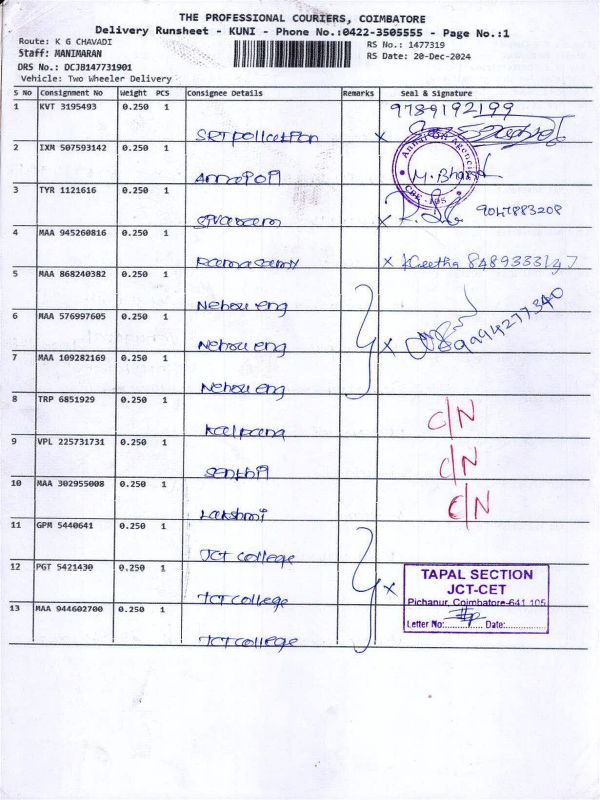 THE PROFESSIONAL COURIERS, COIMBATORE
Delivery Runsheet - KUNI - Phone No.:0422-3505555 - Page No.:1
Route: K G CHAVADI
RS No.: 1477319
Staff: MANIMARAN
RS Date: 20-Dec-2024
DRS No.: DCJB147731901
Vehicle: Two Wheeler Delivery
S No Consignment No Weight PCS Consignee Details Remarks Seal & Signature
1 KVT 3195493 0.250 1
9789192199
2 IXM 507593142 0.250 1
M. Bharat
3 TYR 1121616 0.250 1
9047883208
4 MAA 945260816 0.250 1
Ramasamy x KGeetha 8489333147
5 MAA 868240382 0.250 1
Nehru eng
6 MAA 576997605 0.250 1
Nehru eng x 8994277340
7 MAA 109282169 0.250 1
Nehru eng
8 TRP 6851929 0.250 1
Kalpana C/N
9 VPL 225731731 0.250 1
Senthil C/N
10 MAA 302955008 0.250 1
Lakshmi C/N
11 GPM 5440641 0.250 1
JCT college
12 PGT 5421430 0.250 1
JCT college x
TAPAL SECTION
JCT-CET
Pichanur, Coimbatore-641 105
Letter No:.............. Date:..............
13 MAA 944602700 0.250 1
JCT college